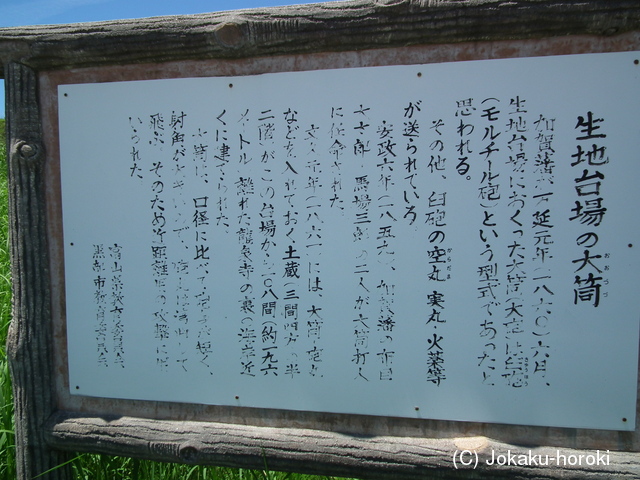 生地台場の大筒
おおづつ
加賀藩が万延元年(一八六〇)六月、
生地台場におくった大筒(大砲)は臼砲
(モルチール砲)という型式であったと
思われる。
その他、臼砲の空丸、実丸、火薬等
からだま
が送られている
安政六年(一八五九)、加賀藩の
馬場三 の二人が大筒打人
に任命された。
文久元年(一八六一)には、大筒
などを入れておく土蔵(三間四方の半
二階)がこの台場から一〇八間(約一九六
メートル)離れた龍泉寺の裏の海岸近
くに建てられた
大筒は、口径に比べて砲身が短く、
射角が大きいので、砲丸は湾曲して
飛ぶ。そのため近距離用の攻撃に用
いられた。
富山県教育委員会
黒部市教育委員会
(C) Jokaku-horoki